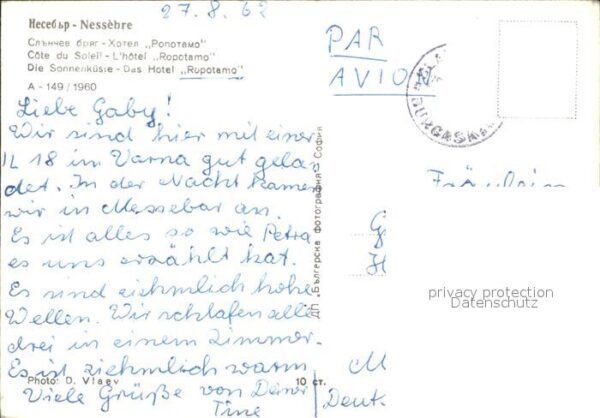 27.8.62
Несебър - Nessèbre
Слънчев бряг - Хотел „Ропотамо"
Côte du Soleil - L'hôtel „Ropotamo"
Die Sonnenküste - Das Hotel „Rupotamo"
A - 149/1960
PAR
AVION
BURGAS
Liebe Gaby!
Wir sind hier mit einer
IL 18 in Varna gut gelan
det. In der Nacht kamen
wir in Messebar an.
Es ist alles so wie Petra
es uns erzählt hat.
Es sind ziehmlich hohe
Wellen. Wir schlafen alle
drei in einem Zimmer.
Es ist ziehmlich warm
Viele Grüße von Deiner
Tine
Photo: D. Vlaev
10 ст.
ДП „Българска фотография" София
Fräulein
G
H
privacy protection
Datenschutz
M
Deut